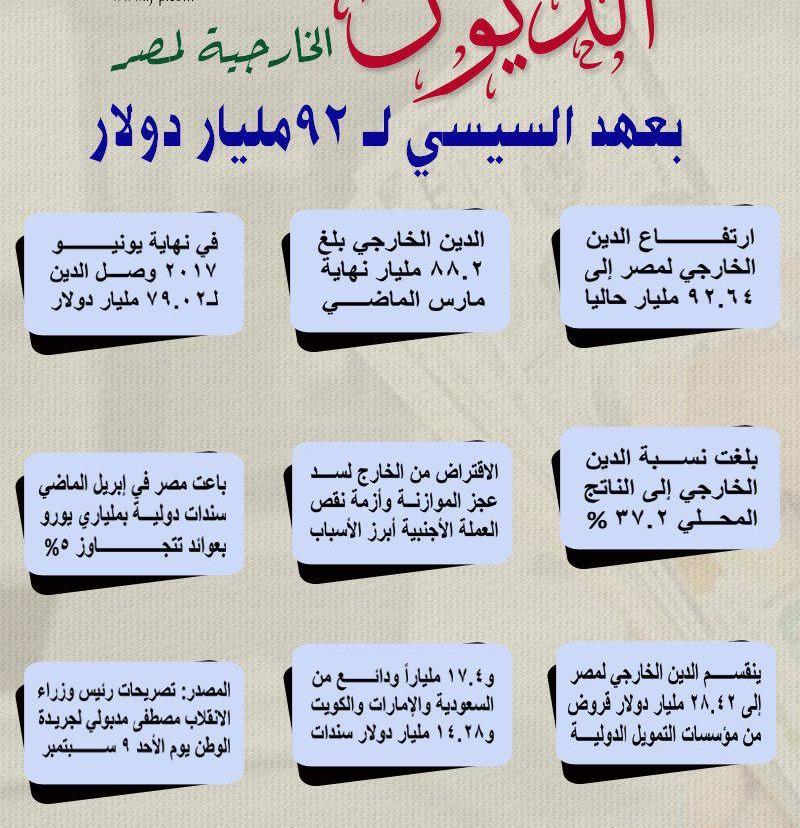 الديون
الخارجية لمصر
بعهد السيسي لـ ٩٢مليار دولار
ارتفـــــــاع الدين
الخارجي لمصر إلى
٩٢.٦٤ مليار حاليا
الدين الخارجي بلغ
٨٨.٢ مليار نهاية
مارس الماضـــــي
في نهاية يونيـــــو
٢٠١٧ وصـــل الدين
لـ٧٩.٠٢ مليار دولار
بلغت نســـبة الدين
الخارجي إلى الناتج
المحـــلي ٣٧.٢ %
الاقتراض من الخارج لســد
عجز الموازنــة وأزمة نقص
العملة الأجنبية أبرز الأسباب
باعت مصر في إبريل الماضي
سندات دوليــة بملياري يورو
بعوائد تتجـــــــاوز ٥%
ينقســـم الدين الخارجي لمصر
إلى ٢٨.٤٢ مليار دولار قروض
من مؤسسات التمويل الدوليــة
و١٧.٤ ملياراً ودائـــع من
السعودية والإمارات والكويت
و١٤.٢٨ مليار دولار سندات
المصدر: تصريحات رئيس وزراء
الانقلاب مصطفى مدبولي لجريدة
الوطن يوم الأحد ٩ ســـــبتمبر